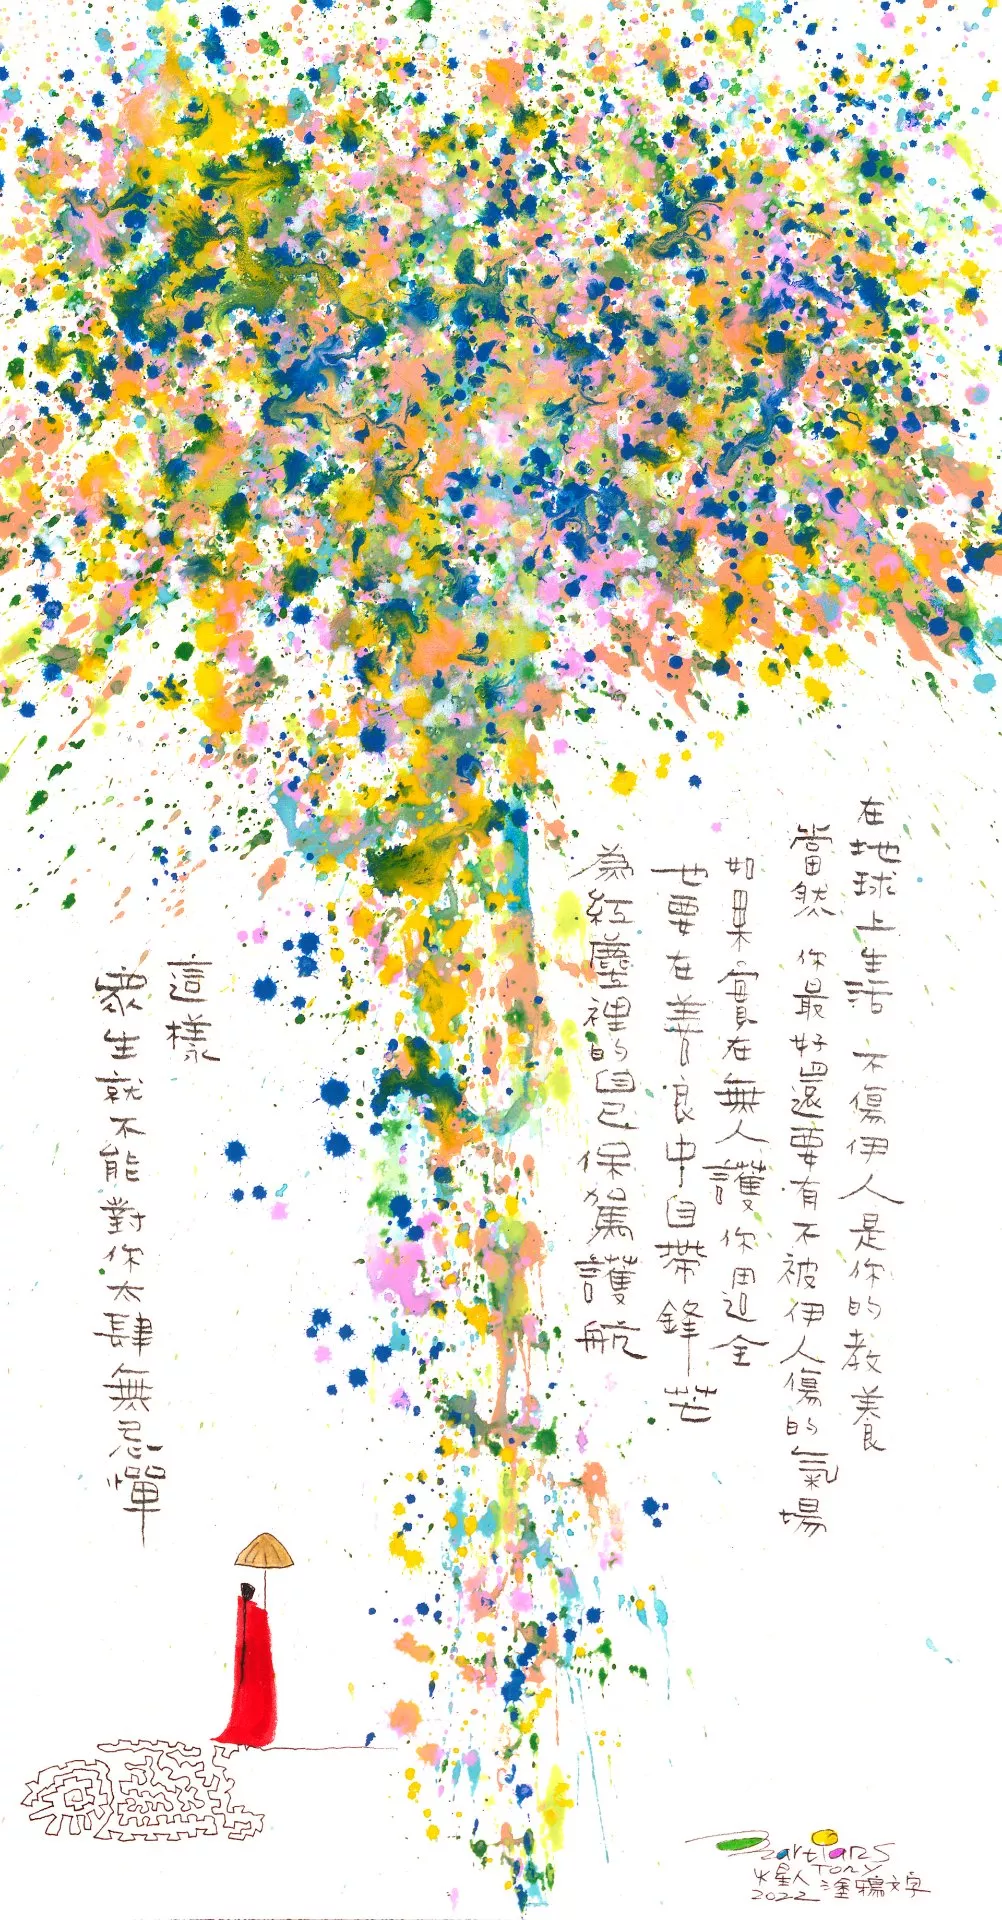 在地球上生活 不傷伊人是你的教養
當然 你最好還要有不被伊人傷的氣場
如果實在無人護你周全
也要在善良中自帶鋒芒
為紅塵裡的自己保駕護航
這樣
眾生就不能對你太肆無忌憚
Martians
Tony
火星人 塗鴉文字
2022